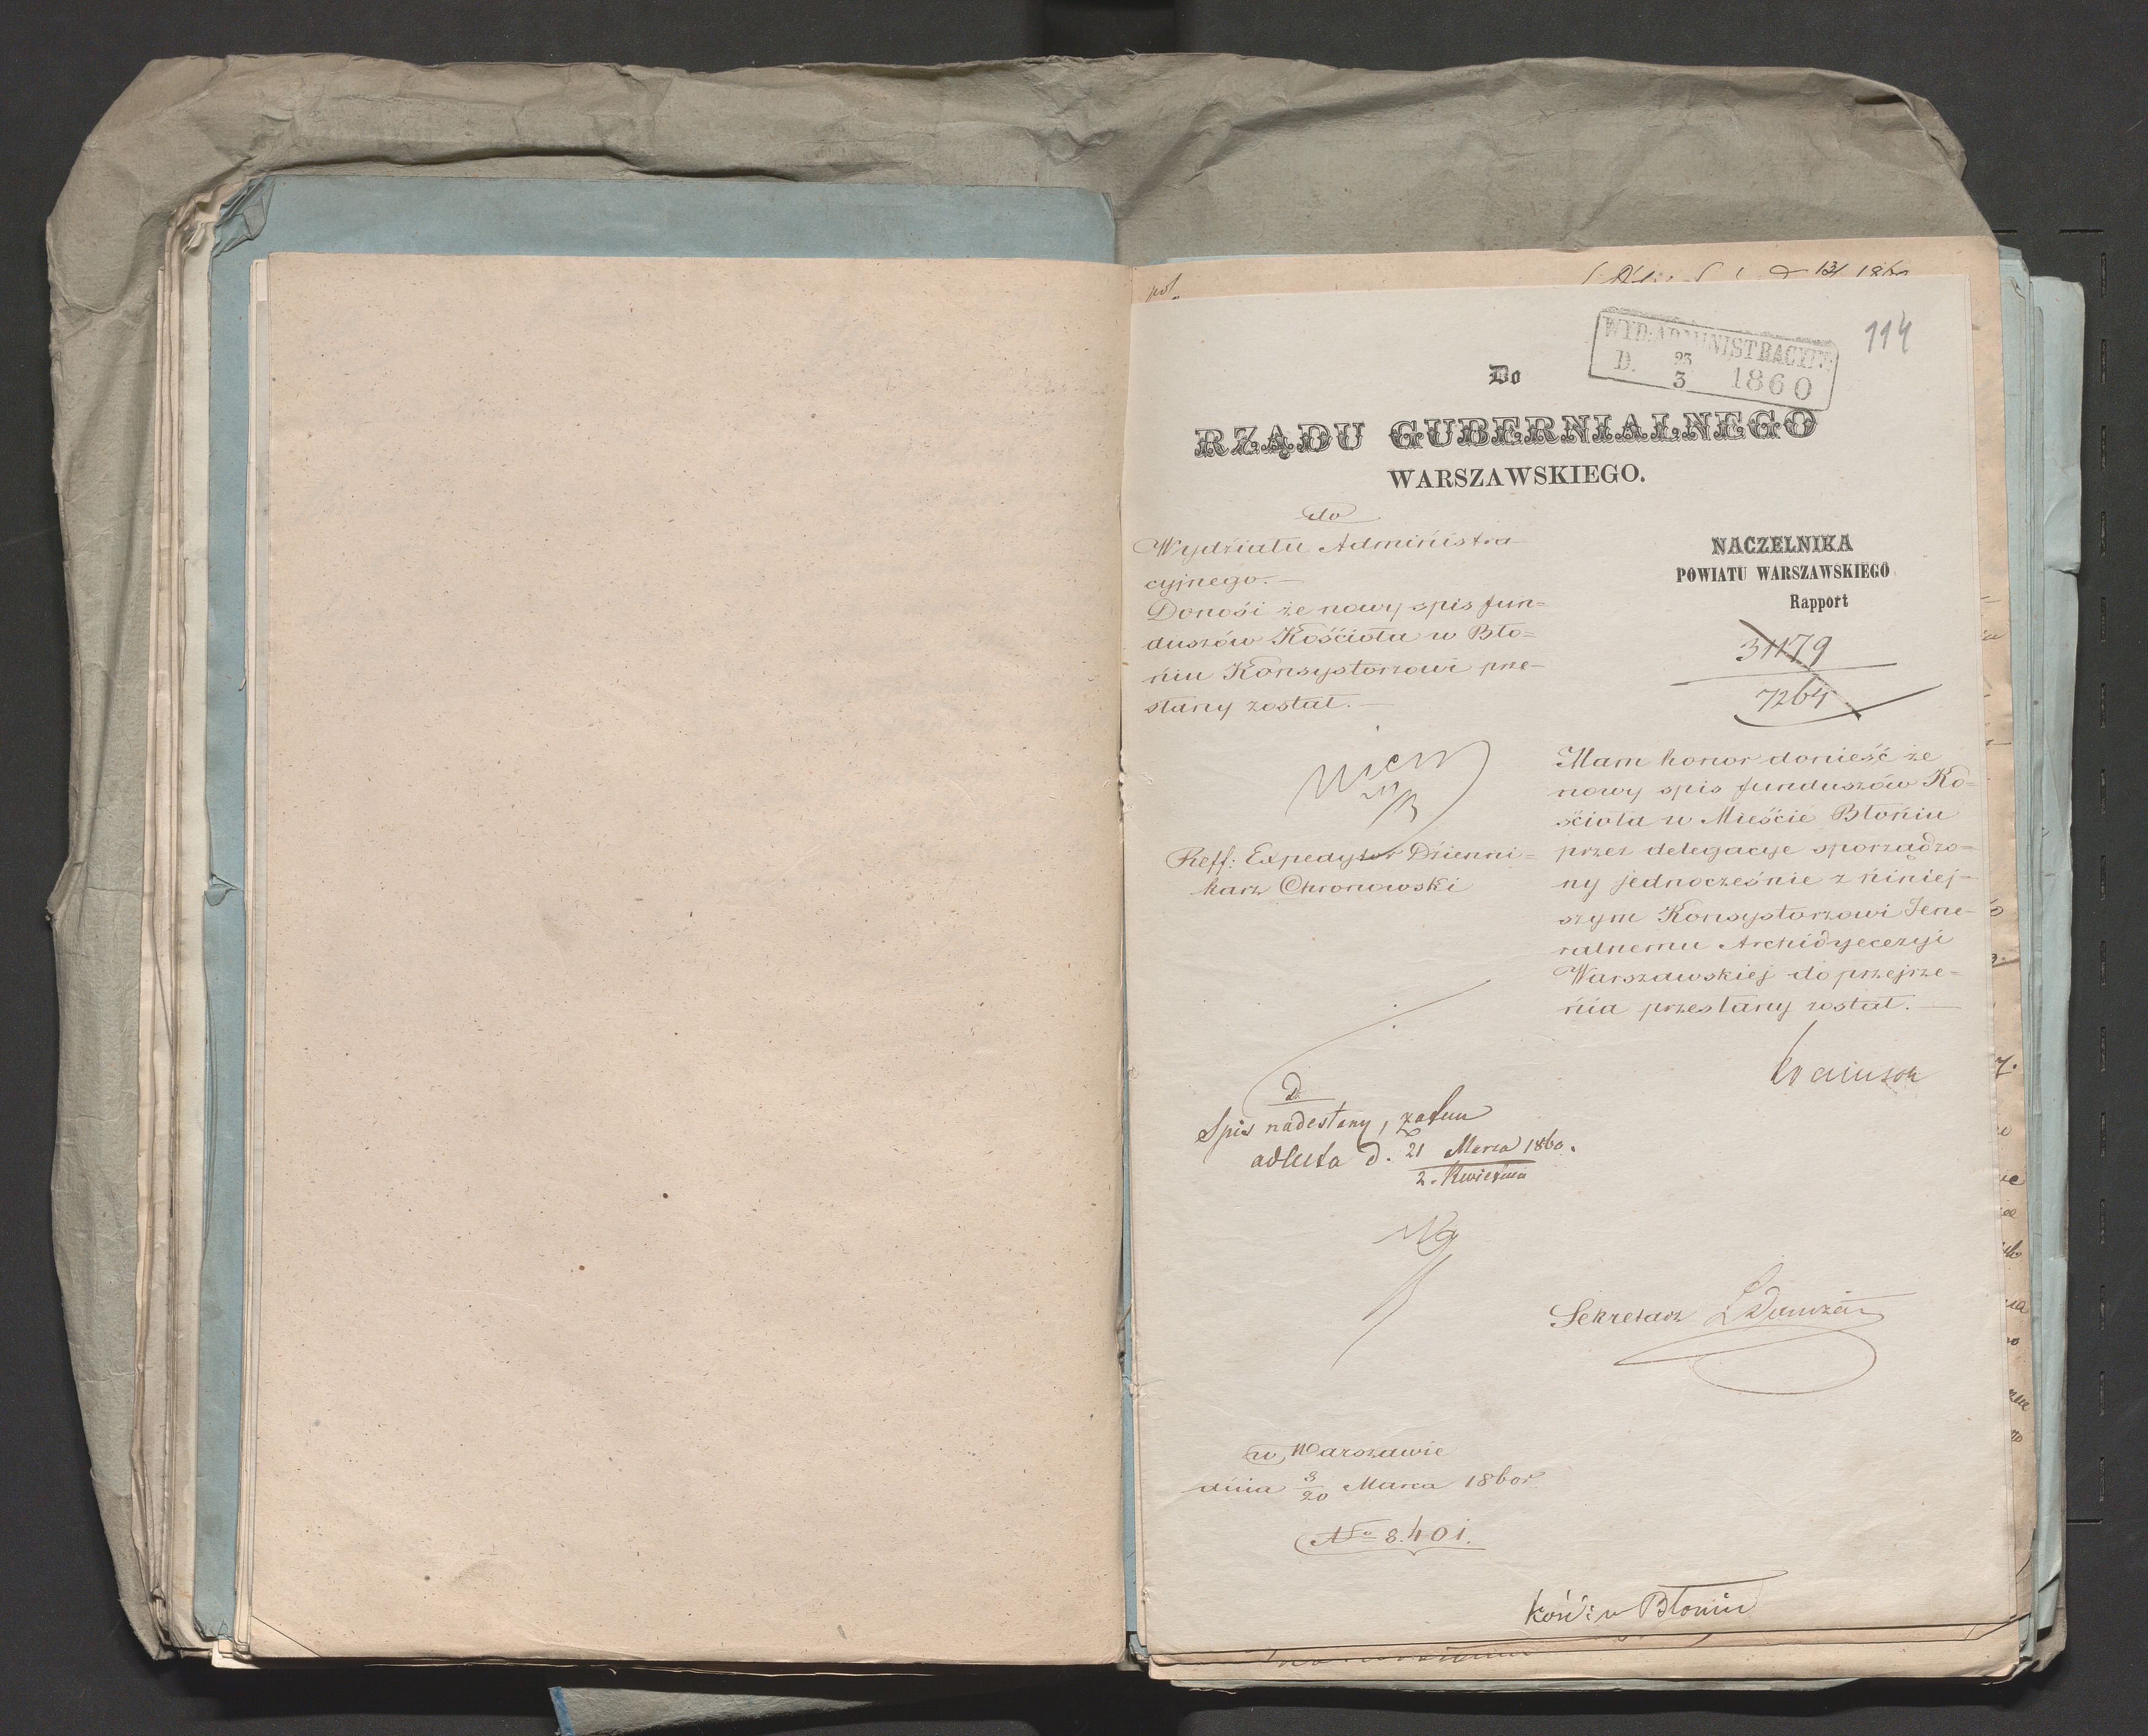 114
WYD: ADMINISTRACYJN:
D. 23/3 1860
Do
RZĄDU GUBERNIALNEGO
WARSZAWSKIEGO.
do
Wydziału Administra-
cyjnego. —
Donosi że nowy spis fun=
duszów Kościoła w Bło=
niu Konsystorzowi prze-
słany został. —
Reff: Expedytor Dzienni=
karz Chronowski
NACZELNIKA
POWIATU WARSZAWSKIEGO
Rapport
31179
7264
Mam honor donieść że
nowy spis funduszów Ko=
ścioła w Mieście Błoniu
przez delegacye sporządzo=
ny jednocześnie z niniej-
szym Konsystorzowi Jene-
ralnemu Archidyecezyi
Warszawskiej do przejrze=
nia przesłany został. —
Spis nadesłany, zatem
ad acta d. 21 Marca 1860.
2. Kwietnia
Sekretarz
w Warszawie
dnia 8/20 Marca 1860r.
No 8.401.
Kość: w Błoniu